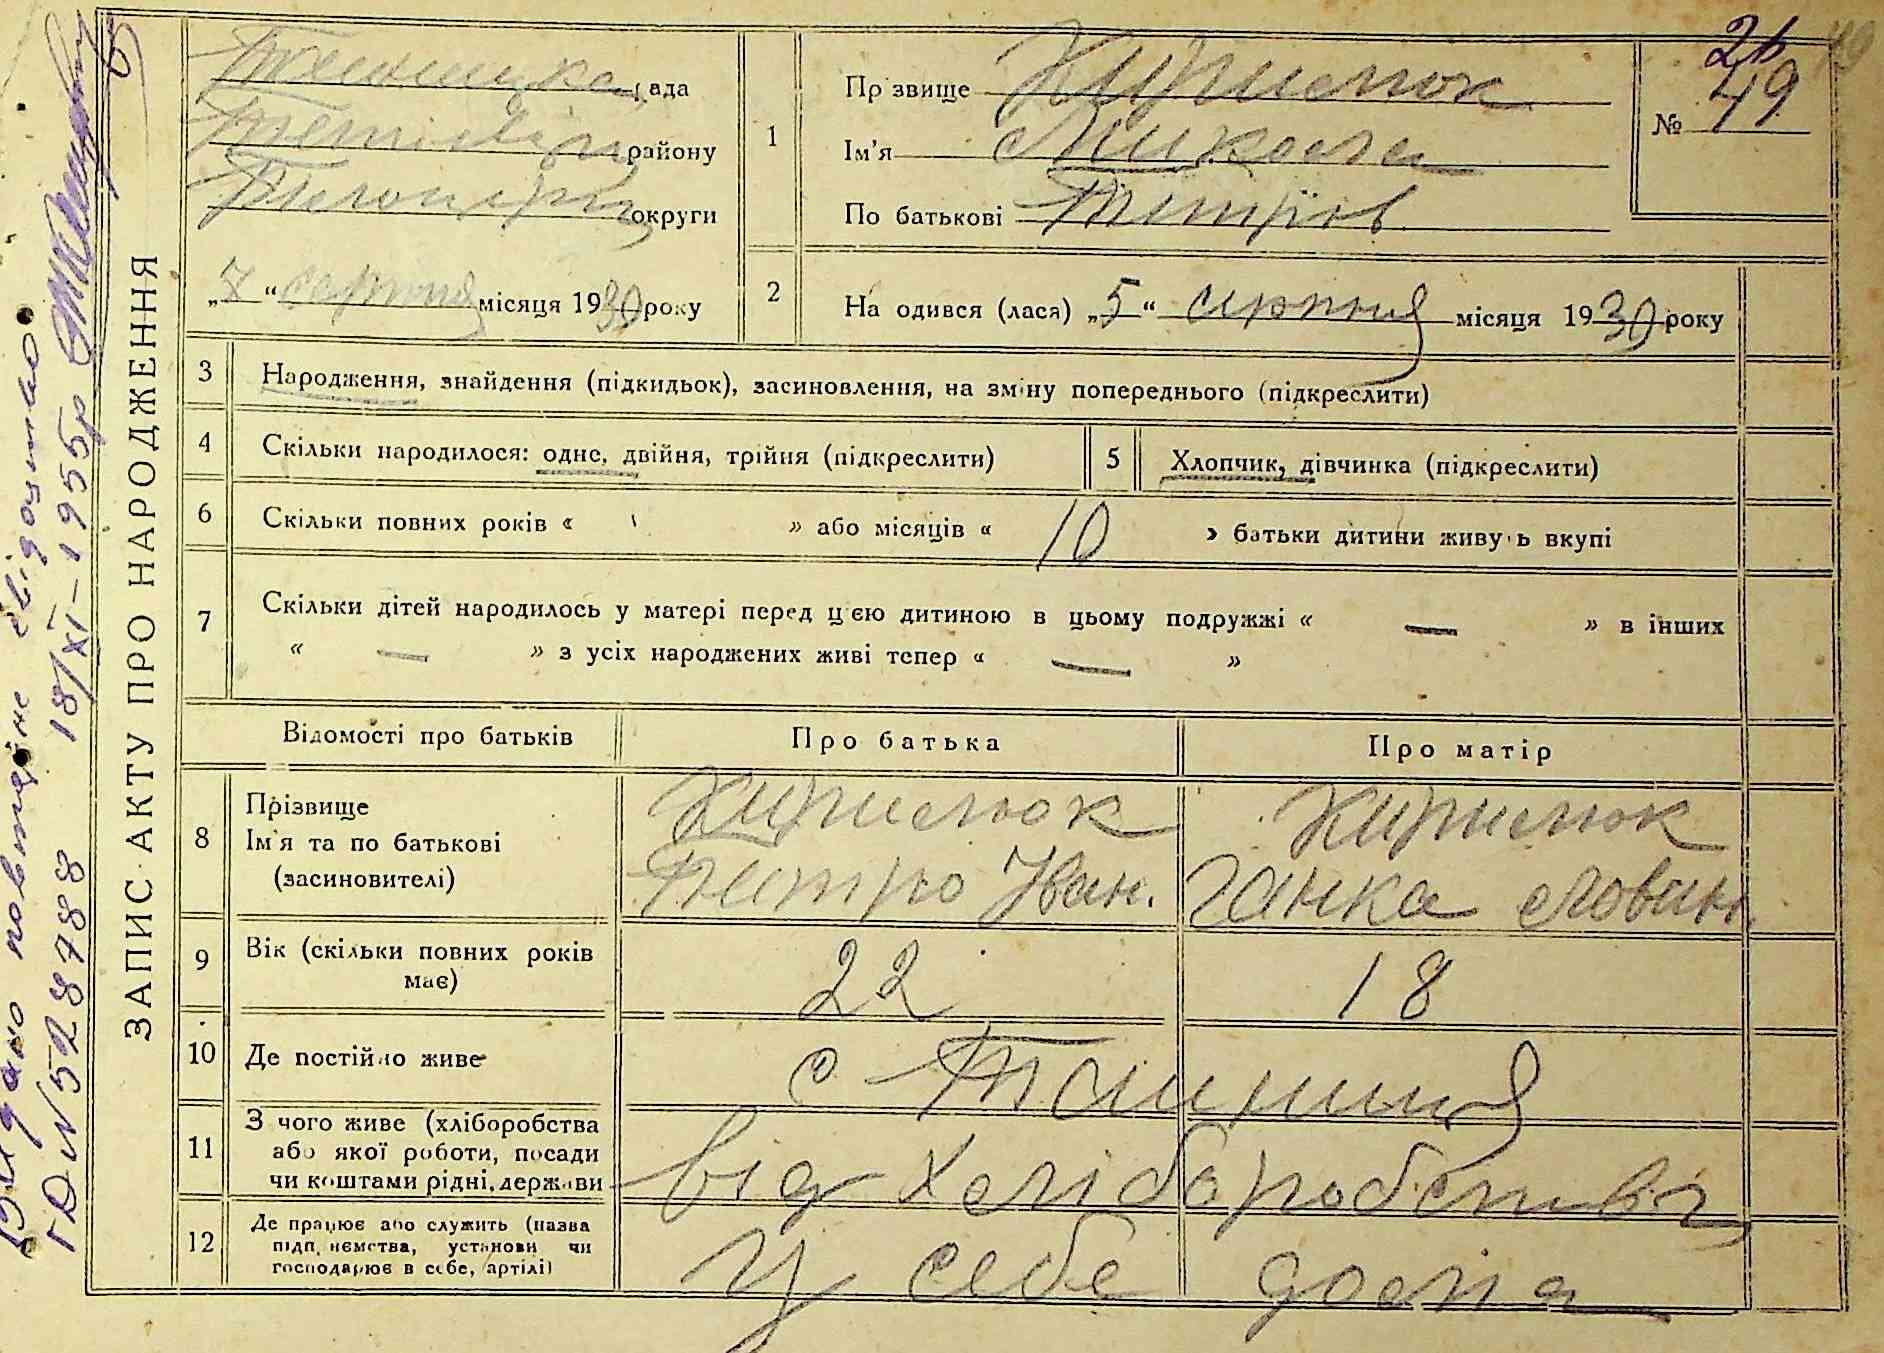 ЗАПИС АКТУ ПРО НАРОДЖЕННЯ
Видано повторне свідоцтво
ГО№ 528788 18/XI-1955р
рада
району
округи
„7“ серпня місяця 1930 року
№ 49
1 Прізвище Кирилюк
Ім'я Микола
По батькові Петрів
2 Народився (лася) „5“ серпня місяця 1930 року
3 Народження, знайдення (підкидьок), засиновлення, на зміну попереднього (підкреслити)
4 Скільки народилося: одне, двійня, трійня (підкреслити)
5 Хлопчик, дівчинка (підкреслити)
6 Скільки повних років « » або місяців « 10 » батьки дитини живуть вкупі
7 Скільки дітей народилось у матері перед цією дитиною в цьому подружжі « — » в інших
« — » з усіх народжених живі тепер « — »
Відомості про батьків Про батька Про матір
8 Прізвище
Ім'я та по батькові
(засиновителі)
Кирилюк
Петро Іван.
Кирилюк
Ганка
9 Вік (скільки повних років
має)
22 18
10 Де постійно живе
с
11 З чого живе (хліборобства
або якої роботи, посади
чи коштами рідні, держави
від хліборобства
12 Де працює або служить (назва
підприємства, установи чи
господарює в себе, артілі)
у себе дома